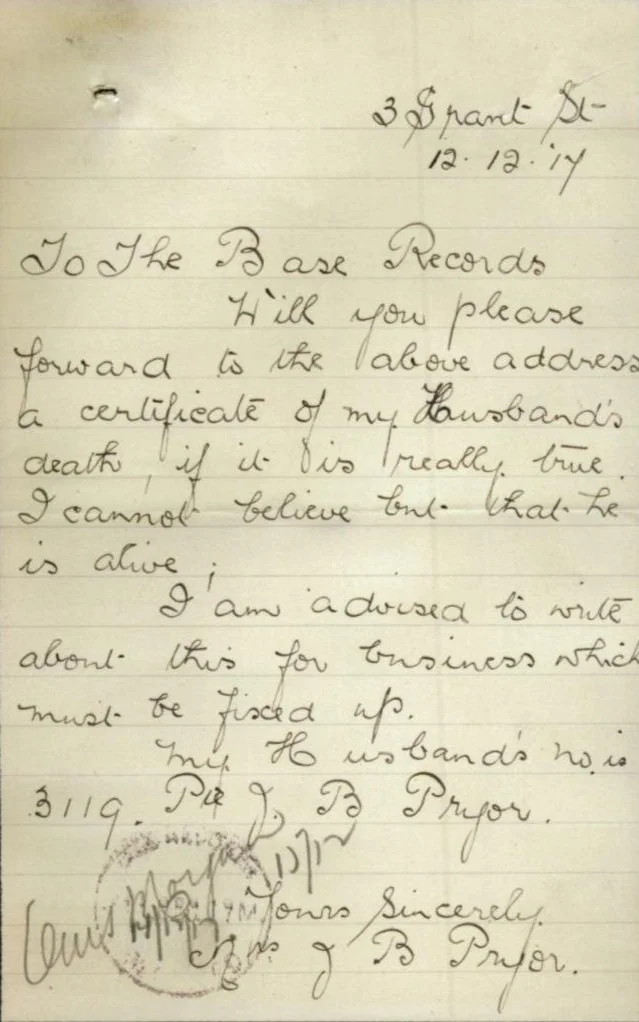 3 Grant St
12.12.'17
To The Base Records
Will you please
forward to the above address
a certificate of my Husband's
death, if it is really true.
I cannot believe but that he
is alive;
I am advised to write
about this for business which
must be fixed up.
My Husband's no. is
3119. Pte J. B Pryor.
13/12
Yours Sincerely
Mrs J B Pryor.